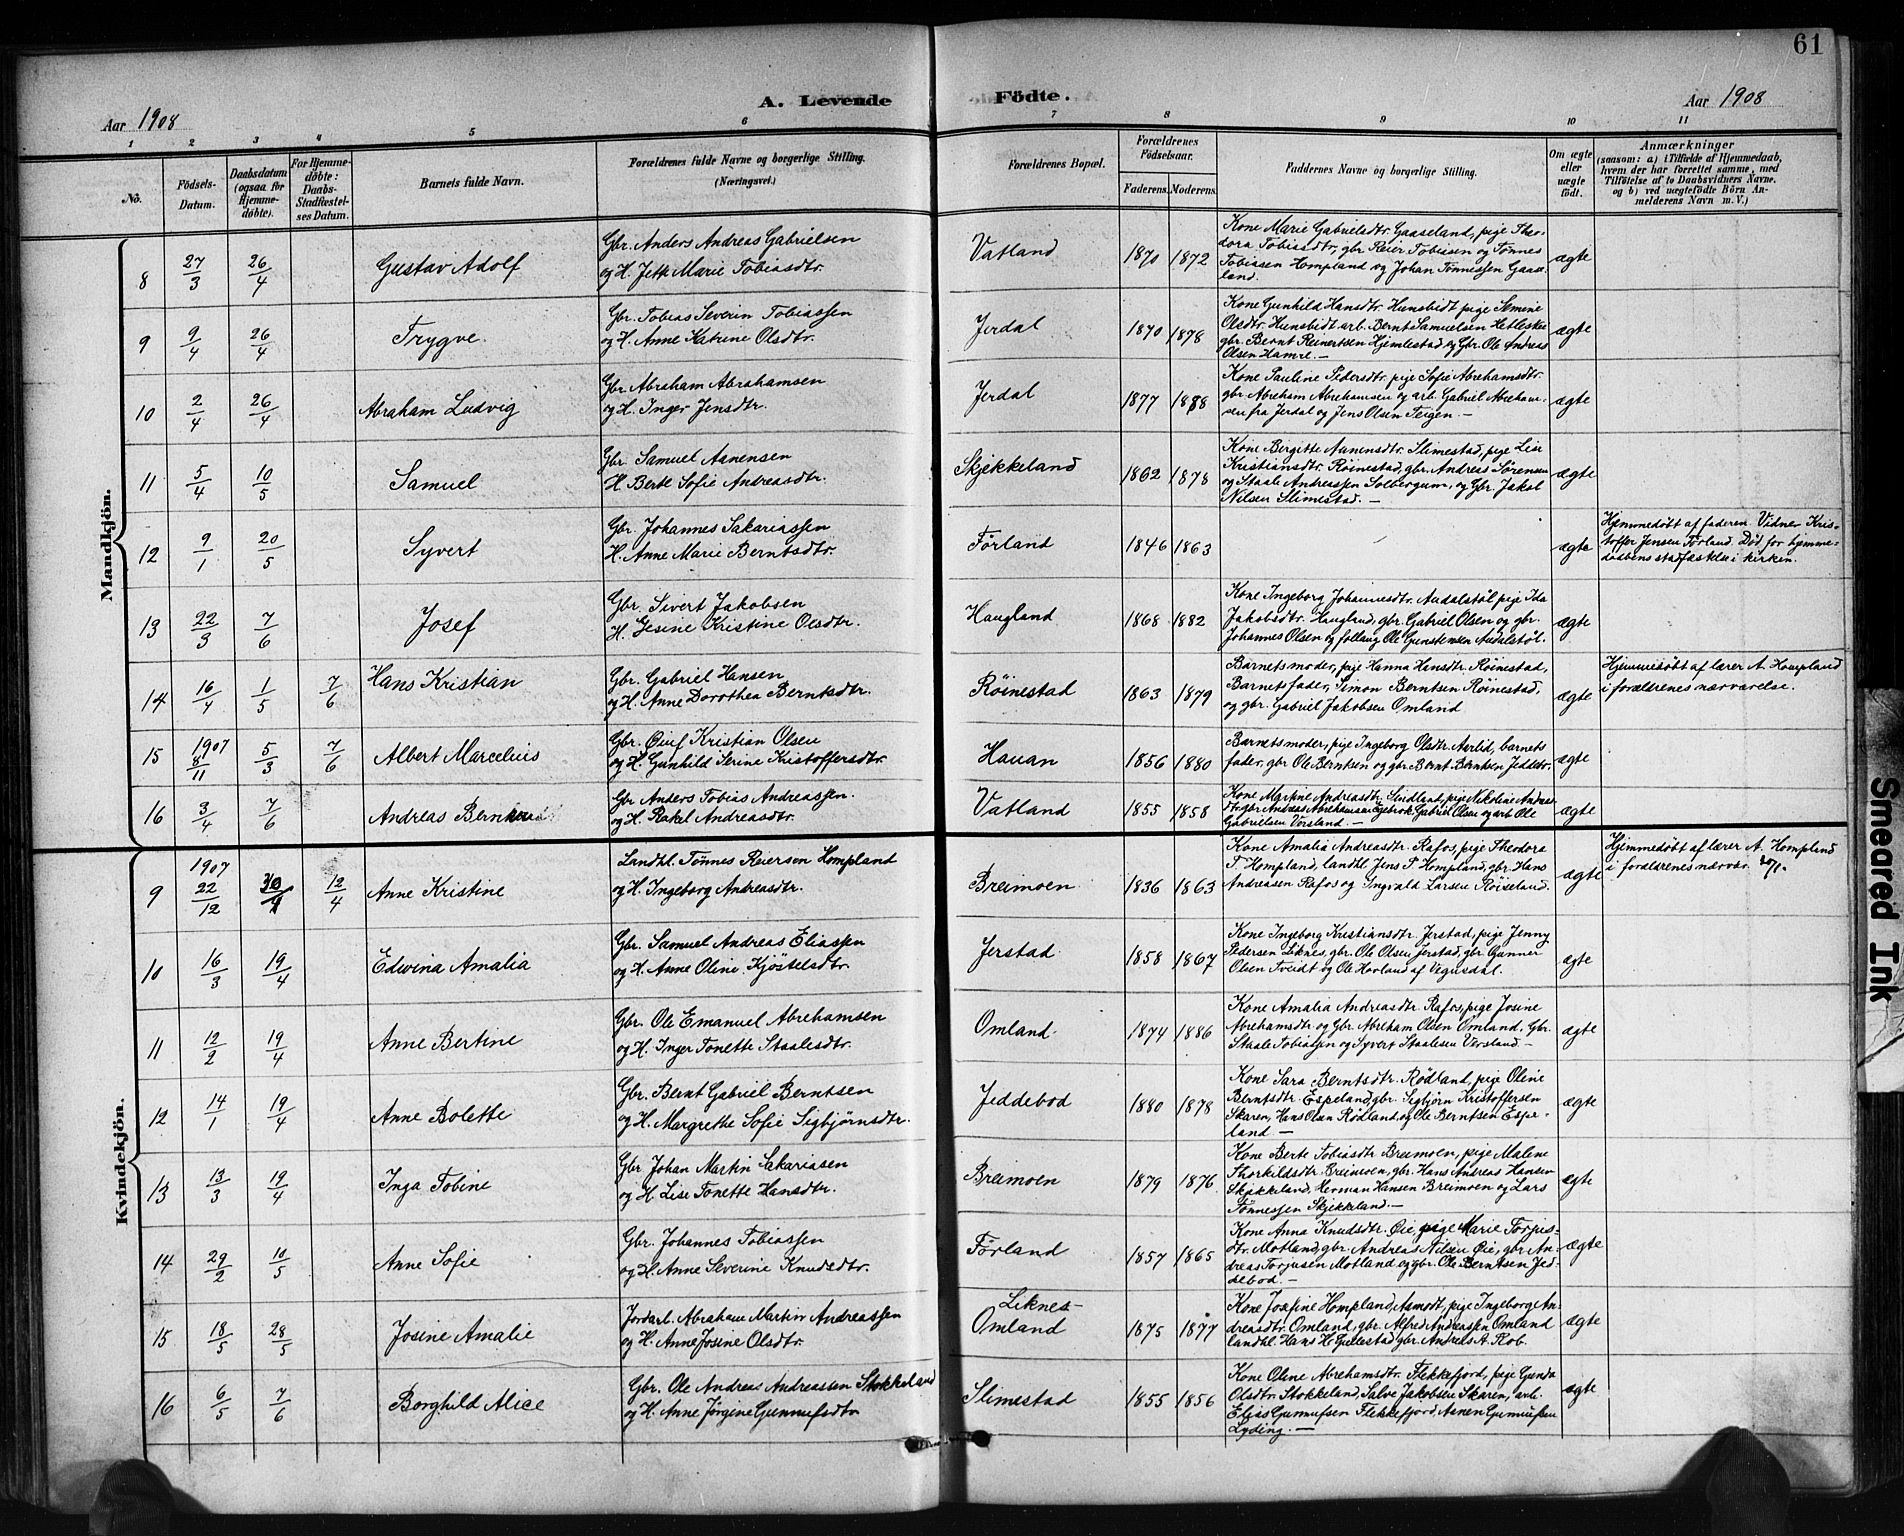 61
A. Levende Födte.
Aar 1908
Aar 1908
1 2 3 4 5 6 7 8 9 10 11
No.
Födsels-Datum.
Daabsdatum (ogsaa for Hjemme-döbte).
For Hjemme-döbte: Daabs-Stadfæstel-ses Datum.
Barnets fulde Navn.
Forældrenes fulde Navne og borgerlige Stilling. (Næringsvei.)
Forældrenes Bopæl.
Forældrenes Födselsaar.
Faderens. Moderens.
Faddernes Navne og borgerlige Stilling.
Om ægte eller uægte födt.
Anmærkninger
(saasom: a) i Tilfælde af Hjemmedaab, hvem der har forrettet samme, med Tilföielse af to Daabsvidners Navne, og b) ved uægtefödte Börn An-melderens Navn m. V.)
Mandkjön.
8 27/3 26/4 Gustav Adolf
Gbr. Anders Andreas Gabrielsen
og H. Jette Marie Tobiasdtr.
Vatland 1870 1872
Kone Marie Gabrielsdtr. Gaaseland, pige Theo-
dora Tobiasdtr, gbr Reier Tobiasen og Tønnes
Tobiasen Hompland og Johan Tønnessen Gaase-
land.
ægte
9 9/4 26/4 Trygve.
Gbr. Tobias Severin Tobiassen
og H. Anne Katrine Olsdtr.
Jerdal 1870 1878
Kone Gunhild Hansdtr. Hunsbidt pige Semine
Olsdtr. Hunsbidt arb. Bernt Samuelsen Hetleskei
gbr. Bernt Reinertsen Hjemlestad og Gbr. Ole Andreas
Olsen Hamre.—
ægte
10 2/4 26/4 Abraham Ludvig
Gbr Abraham Abrahamsen
og H. Inger Jensdtr.
Jerdal 1877 1888
Kone Pauline Pedersdtr. pige Sofie Abrehamsdtr.
gbr Abreham Abrehamsen og arb. Gabriel Abreham-
sen fra Jerdal og Jens Olsen Teigen.—
ægte
11 5/4 10/5 Samuel
Gbr. Samuel Aanensen
H. Berte Sofie Andreasdtr.
Skjekkeland 1862 1878
Kone Birgitte Aanensdtr. Slimestad, pige Lise
Kristiansdtr. Røinestad, gbr. Andreas Sørensen
og Staale Andreassen Solbergum, og Gbr. Jakob
Nilsen Slimestad.—
ægte
12 9/1 20/5 Syvert
Gbr. Johannes Sakariassen
H. Anne Marie Berntsdtr.
Førland 1846 1863
ægte
Hjemmedøbt af faderen. Vidner Kris-
toffer Jensen Førland. Død før hjemme-
daabens stadfæstelse i kirken.
13 22/3 7/6 Josef
Gbr. Sivert Jakobsen
H. Gesine Kristine Olsdtr.
Haugland 1868 1882
Kone Ingeborg Johannesdtr. Audalstøl pige Ida
Jakobsdtr. Haugland, gbr. Gabriel Olsen og gbr.
Johannes Olsen og follaug Ole Gunstensen Audalstøl.
ægte
14 16/4 1/5 7/6 Hans Kristian
Gbr. Gabriel Hansen
og H. Anne Dorothea Berntsdtr.
Røinestad 1863 1879
Barnets moder, pige Hanna Hansdtr. Røinestad,
Barnets fader, Simon Berntsen Røinestad,
og gbr. Gabriel Jakobsen Omland
ægte
Hjemmedøbt af lærer A. Hompland
i forældrenes nærværelse.
15 1907 8/11 5/3 7/6 Albert Marcelius
Gbr. Oluf Kristian Olsen
og H. Gunhild Serine Kristoffersdtr.
Hauan 1856 1880
Barnets moder, pige Ingeborg Olsdtr. Aarlid, barnets
fader, gbr Ole Berntsen og gbr. Bernt Berntsen Jeddebr.
ægte
16 3/4 7/6 Andreas
Gbr Anders Tobias Andreassen.
og H. Rakel Andreasdtr.
Vatland 1855 1858
Kone Martine Andreasdtr. Sindland, pige Nikoline Andreas-
dtr, gbr Andreas Abrehamsen Egebrok, Gabriel Olsen og arb. Ole
Gabrielsen Versland.—
ægte
Kvindekjön.
9 1907 22/12 12/4 Anne Kristine
Landhl. Tønnes Reierson Hompland
og H. Ingeborg Andreasdtr.
Breimoen 1836 1863
Kone Amalia Andreasdtr. Rafos, pige Theodora
T. Hompland, landhl. Jens T. Hompland, gbr. Hans
Andreasen Rafos og Ingvald Larsen Røiseland.
ægte
Hjemmedøbt af lærer A. Hompland
i forældrenes nærvær.
10 16/3 19/4 Edvina Amalia
Gbr. Samuel Andreas Eliassen
og H. Anne Oline Kjøstelsdtr.
Jerstad 1858 1867
Kone Ingeborg Kristiansdtr. Jerstad, pige Jenny
Pedersen Liknes, gbr. Ole Olsen Jerstad, gbr. Gunner
Olsen Tveidt og Ole Hovland af Vegusdal.
ægte
11 12/2 19/4 Anne Bertine
Gbr. Ole Emanuel Abrehamsen
og H. Inger Tonette Staalesdtr.
Omland. 1874 1886
Kone Amalia Andreasdtr. Rafos, pige Josine
Abrehamsdtr. og Gbr. Abreham Olsen Omland, Gbr.
Staale Tobiassen og Syvert Staalesen Versland.—
ægte
12 14/1 19/4 Anne Bolette
Gbr. Bernt Gabriel Berntsen
og H. Margrethe Sofie Sigbjørnsdtr.
Jeddebod 1880 1878
Kone Sara Berntsdtr. Rødland, pige Oline
Berntsdtr. Espeland, gbr. Sigbjørn Kristoffersen
Skaren, Hans Olsen Rødland og Ole Berntsen Espe-
land —
ægte
13 13/3 19/4 Inga Tobine
Gbr. Johan Martin Sakariasen
og H. Lise Tonette Hansdtr.
Breimoen 1879 1876
Kone Berte Tobiasdtr Breimoen, pige Maline
Thorkildsdtr. Breimoen, gbr. Hans Andreas Hansen
Skjekkeland, Herman Hansen Breimoen og Lars
Tønnessen Skjekkeland.—
ægte
14 29/2 10/5 Anne Sofie
Gbr. Johannes Tobiassen
og H. Anne Severine Knudsdtr.
Førland 1857 1865
Kone Anna Knudsdtr. Øie, pige Marie Torjus-
dtr. Motland, gbr. Andreas Nilsen Øie, gbr. An-
dreas Torjusen Motland og gbr. Ole Berntsen Jed-
debod.—
ægte
15 18/5 28/5 Josine Amalie
Jordarb. Abraham Martin Andreassen
og H. Anne Josine Olsdtr.
Liknes-
Omland 1875 1877
Kone Josefine Hompland, Aamodt, pige Ingeborg An-
dreasdtr. Omland, gbr. Alfred Andreassen Omland
landhl. Hans H. Gullestad gbr. Andreas A. Rob.
ægte
16 6/5 7/6 Borghild Alice
Gbr. Ole Andreas Andreassen Stokkeland
og H. Anne Jørgine Gunnufsdtr
Slimestad 1855 1856
Kone Oline Abrehamsdtr. Flekkefjord, pige Gunda
Olsdtr. Stokkeland, Salve Jakobsen Skaren, arb.
Elias Gunnufsen Flekkefjord, Aanen Gunnufsen
Lyding.—
ægte
Smeared Ink